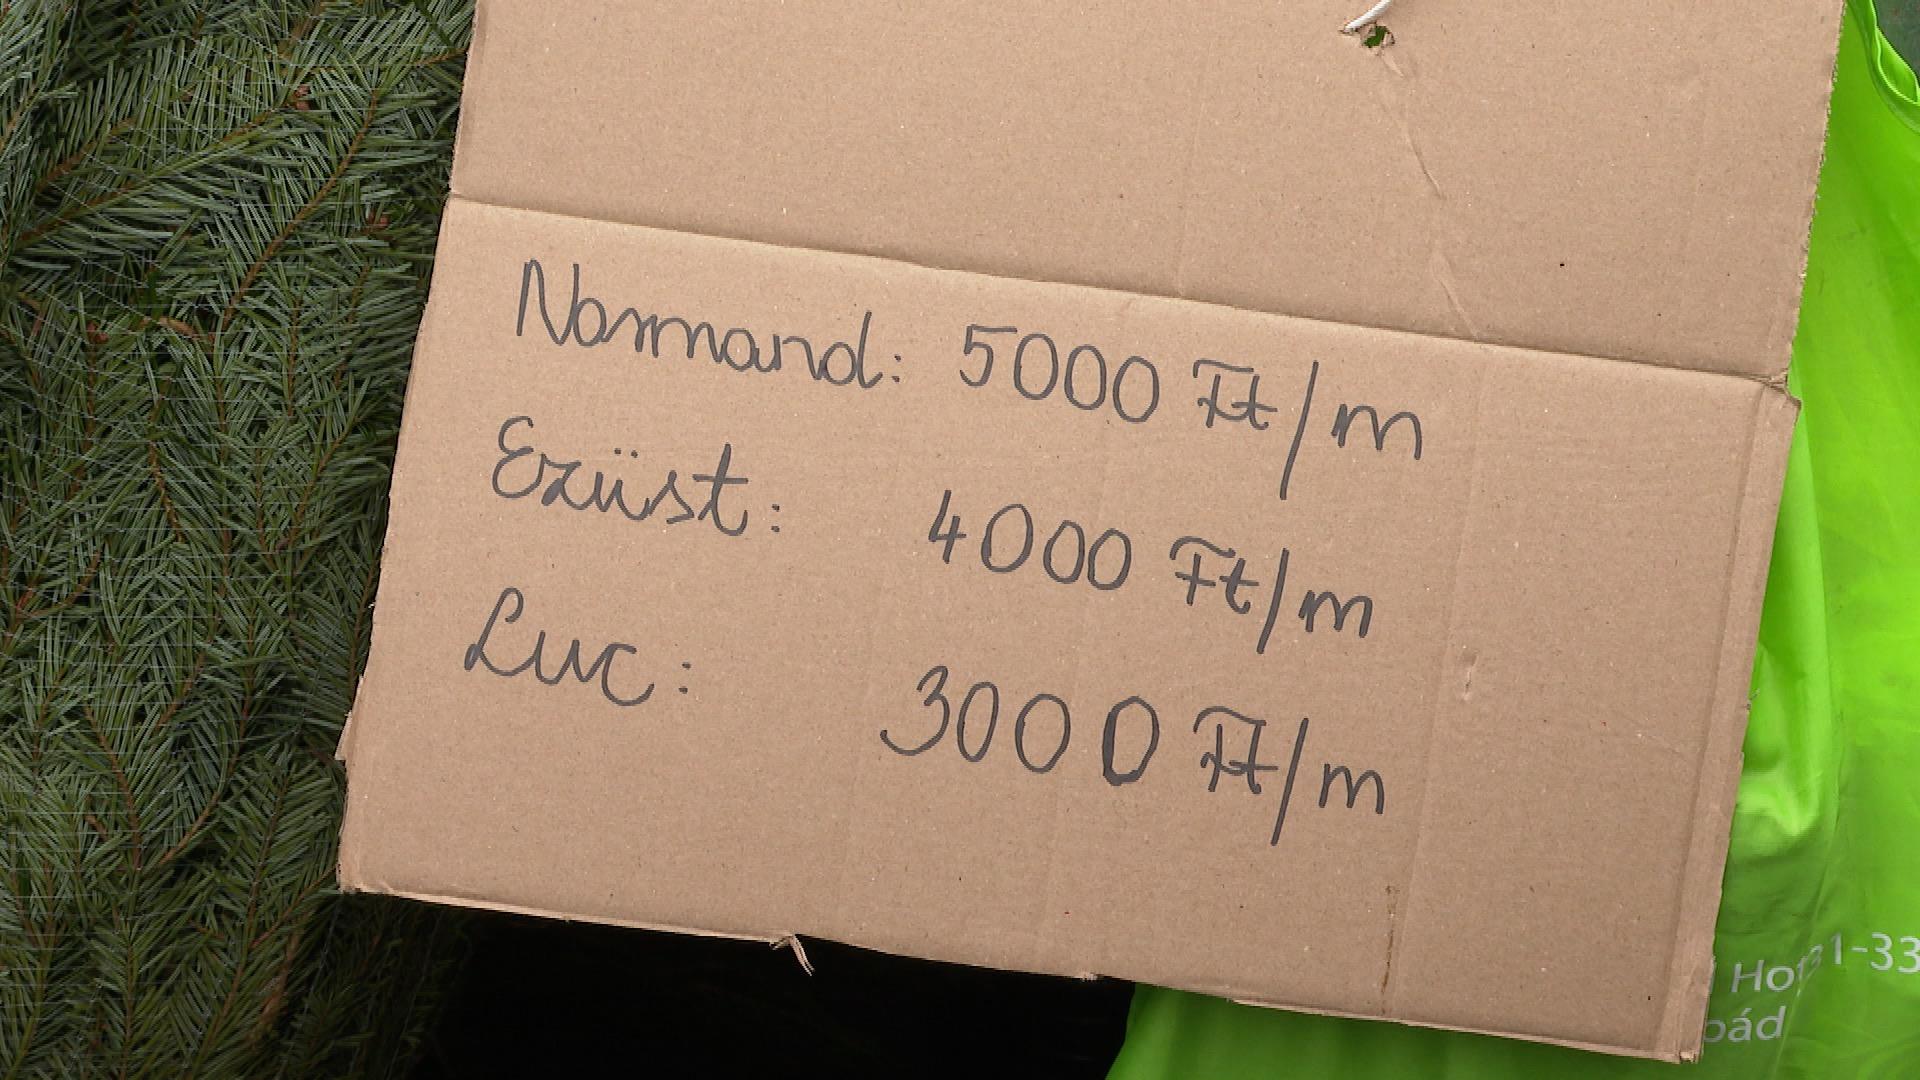 Normand: 5000 Ft/m
Ezüst: 4000 Ft/m
Luc: 3000 Ft/m
1-33